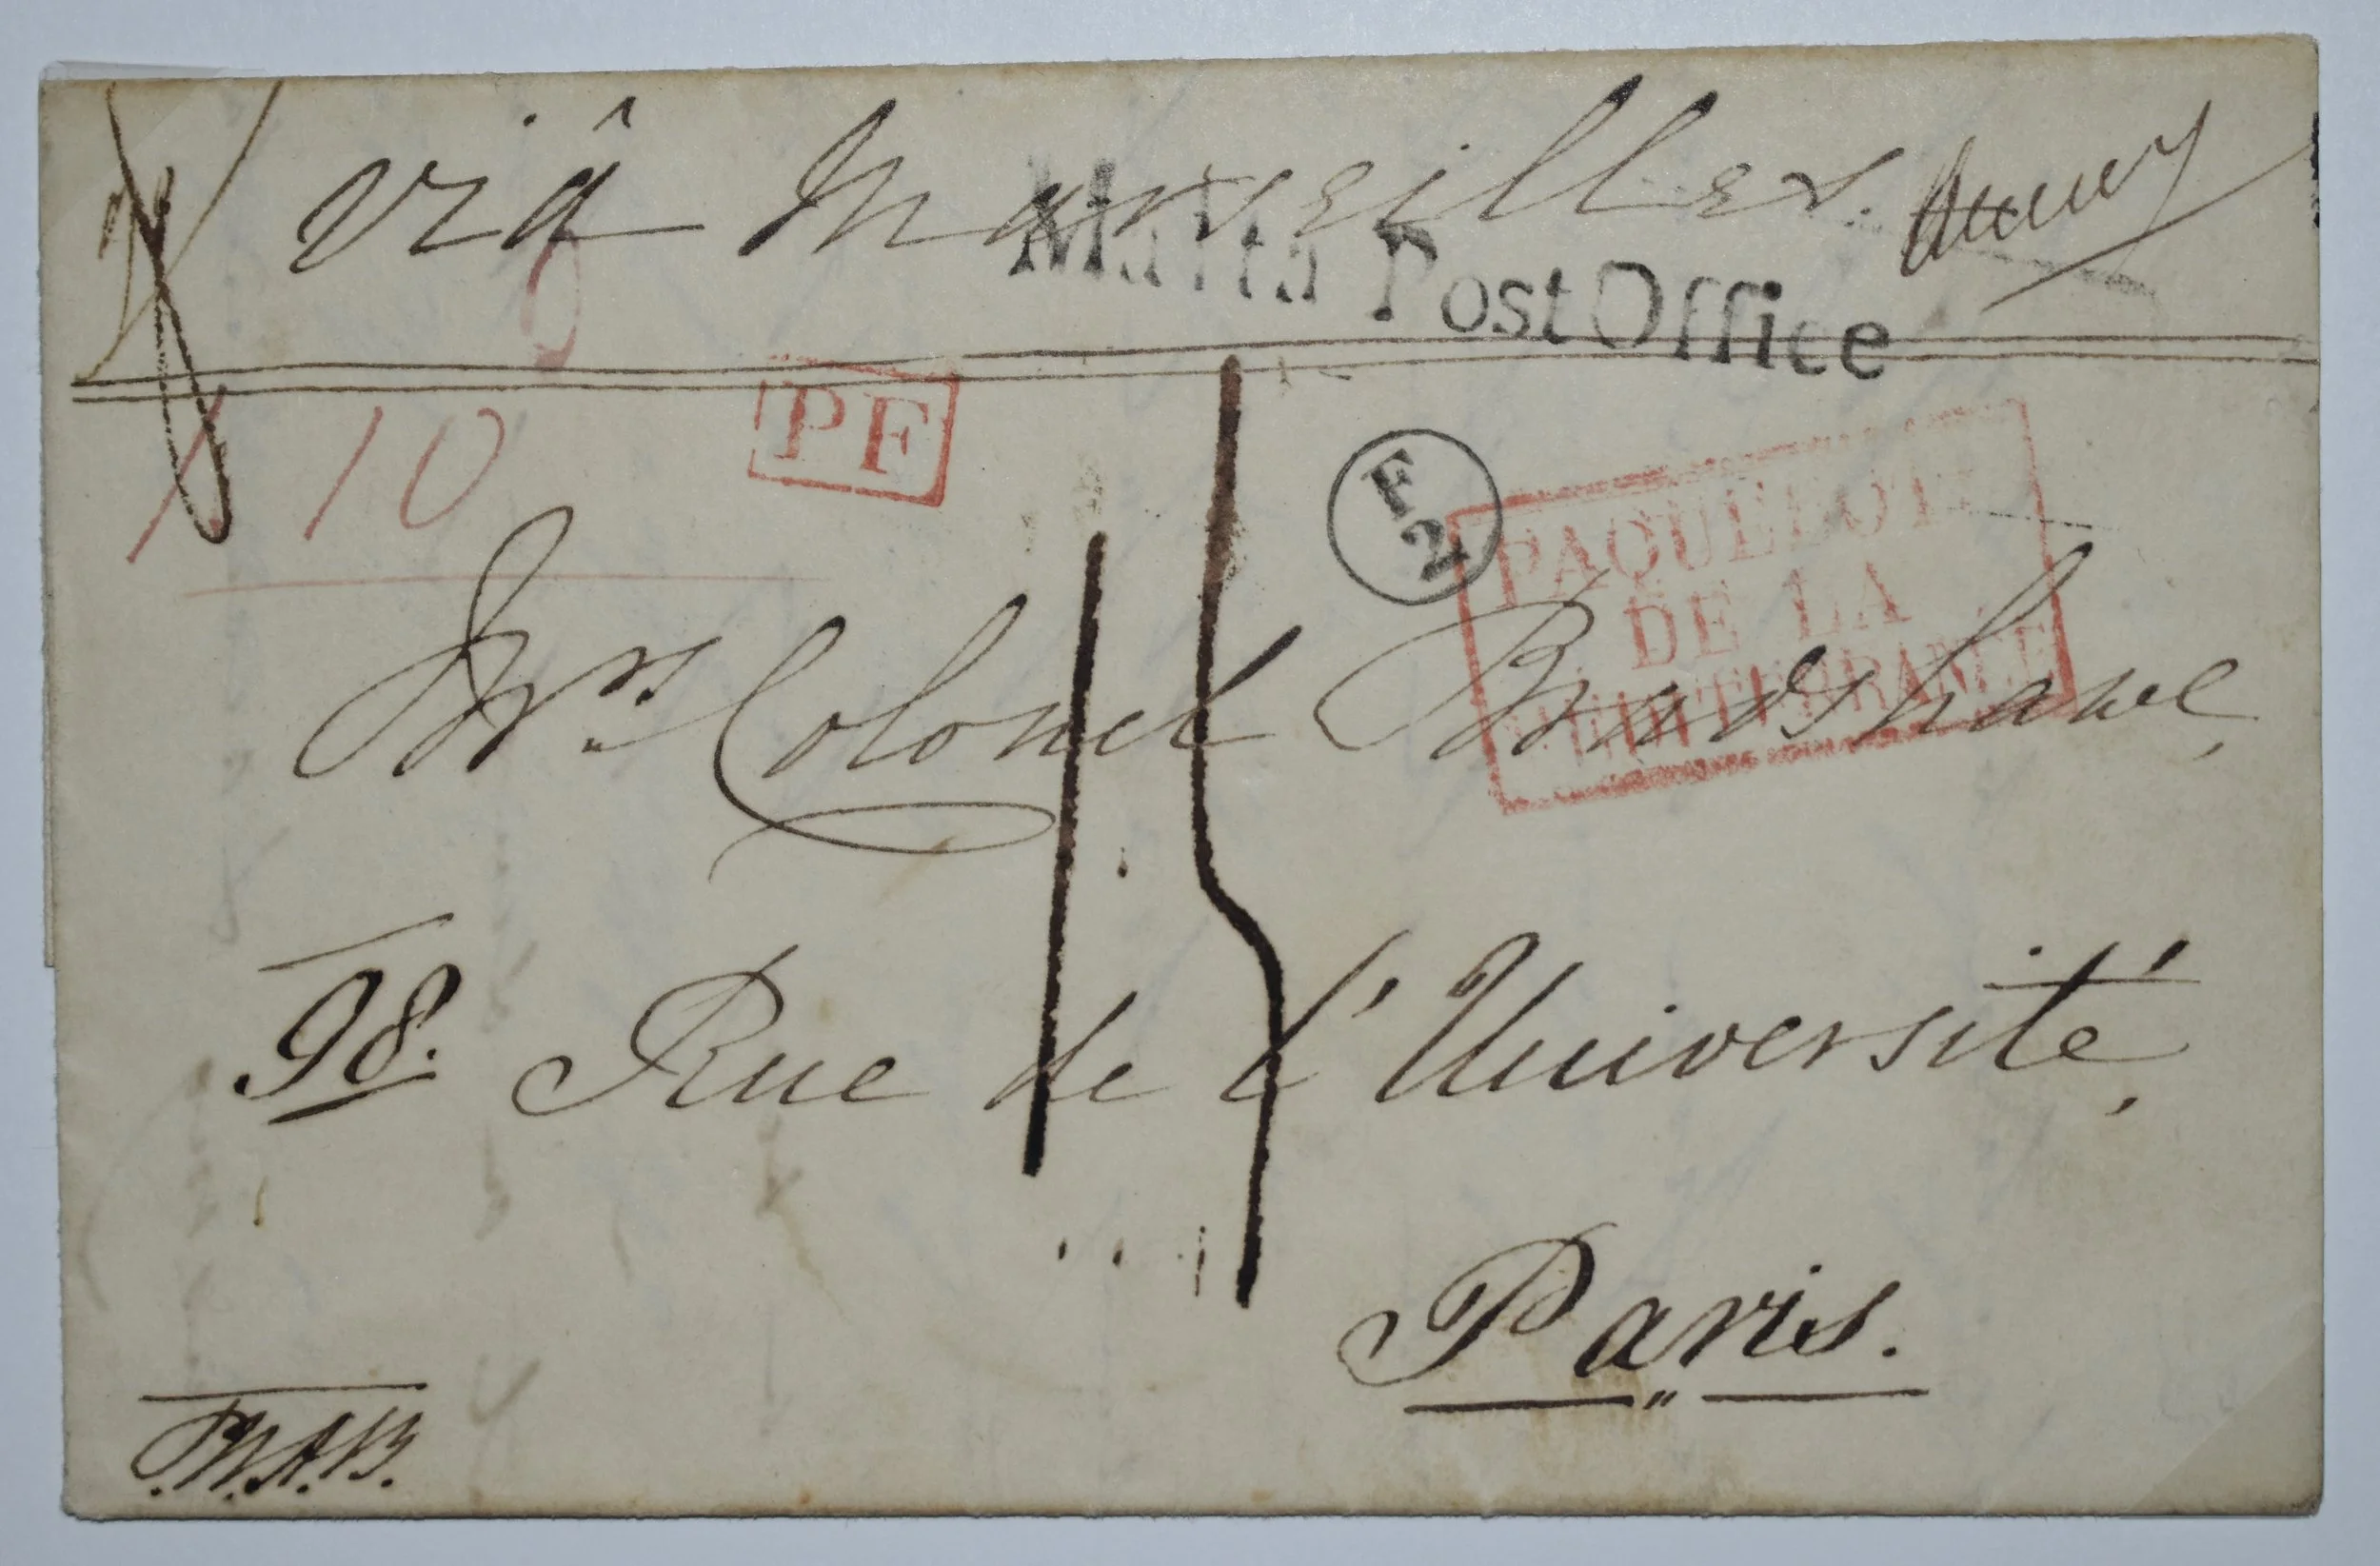 viâ Marseilles.
Malta Post Office
10
PF
F
2
PAQUEBOTS
DE LA
MÉDITERRANÉE
Mrs Colonel Bradshawe,
98. Rue de l'Université,
Paris.